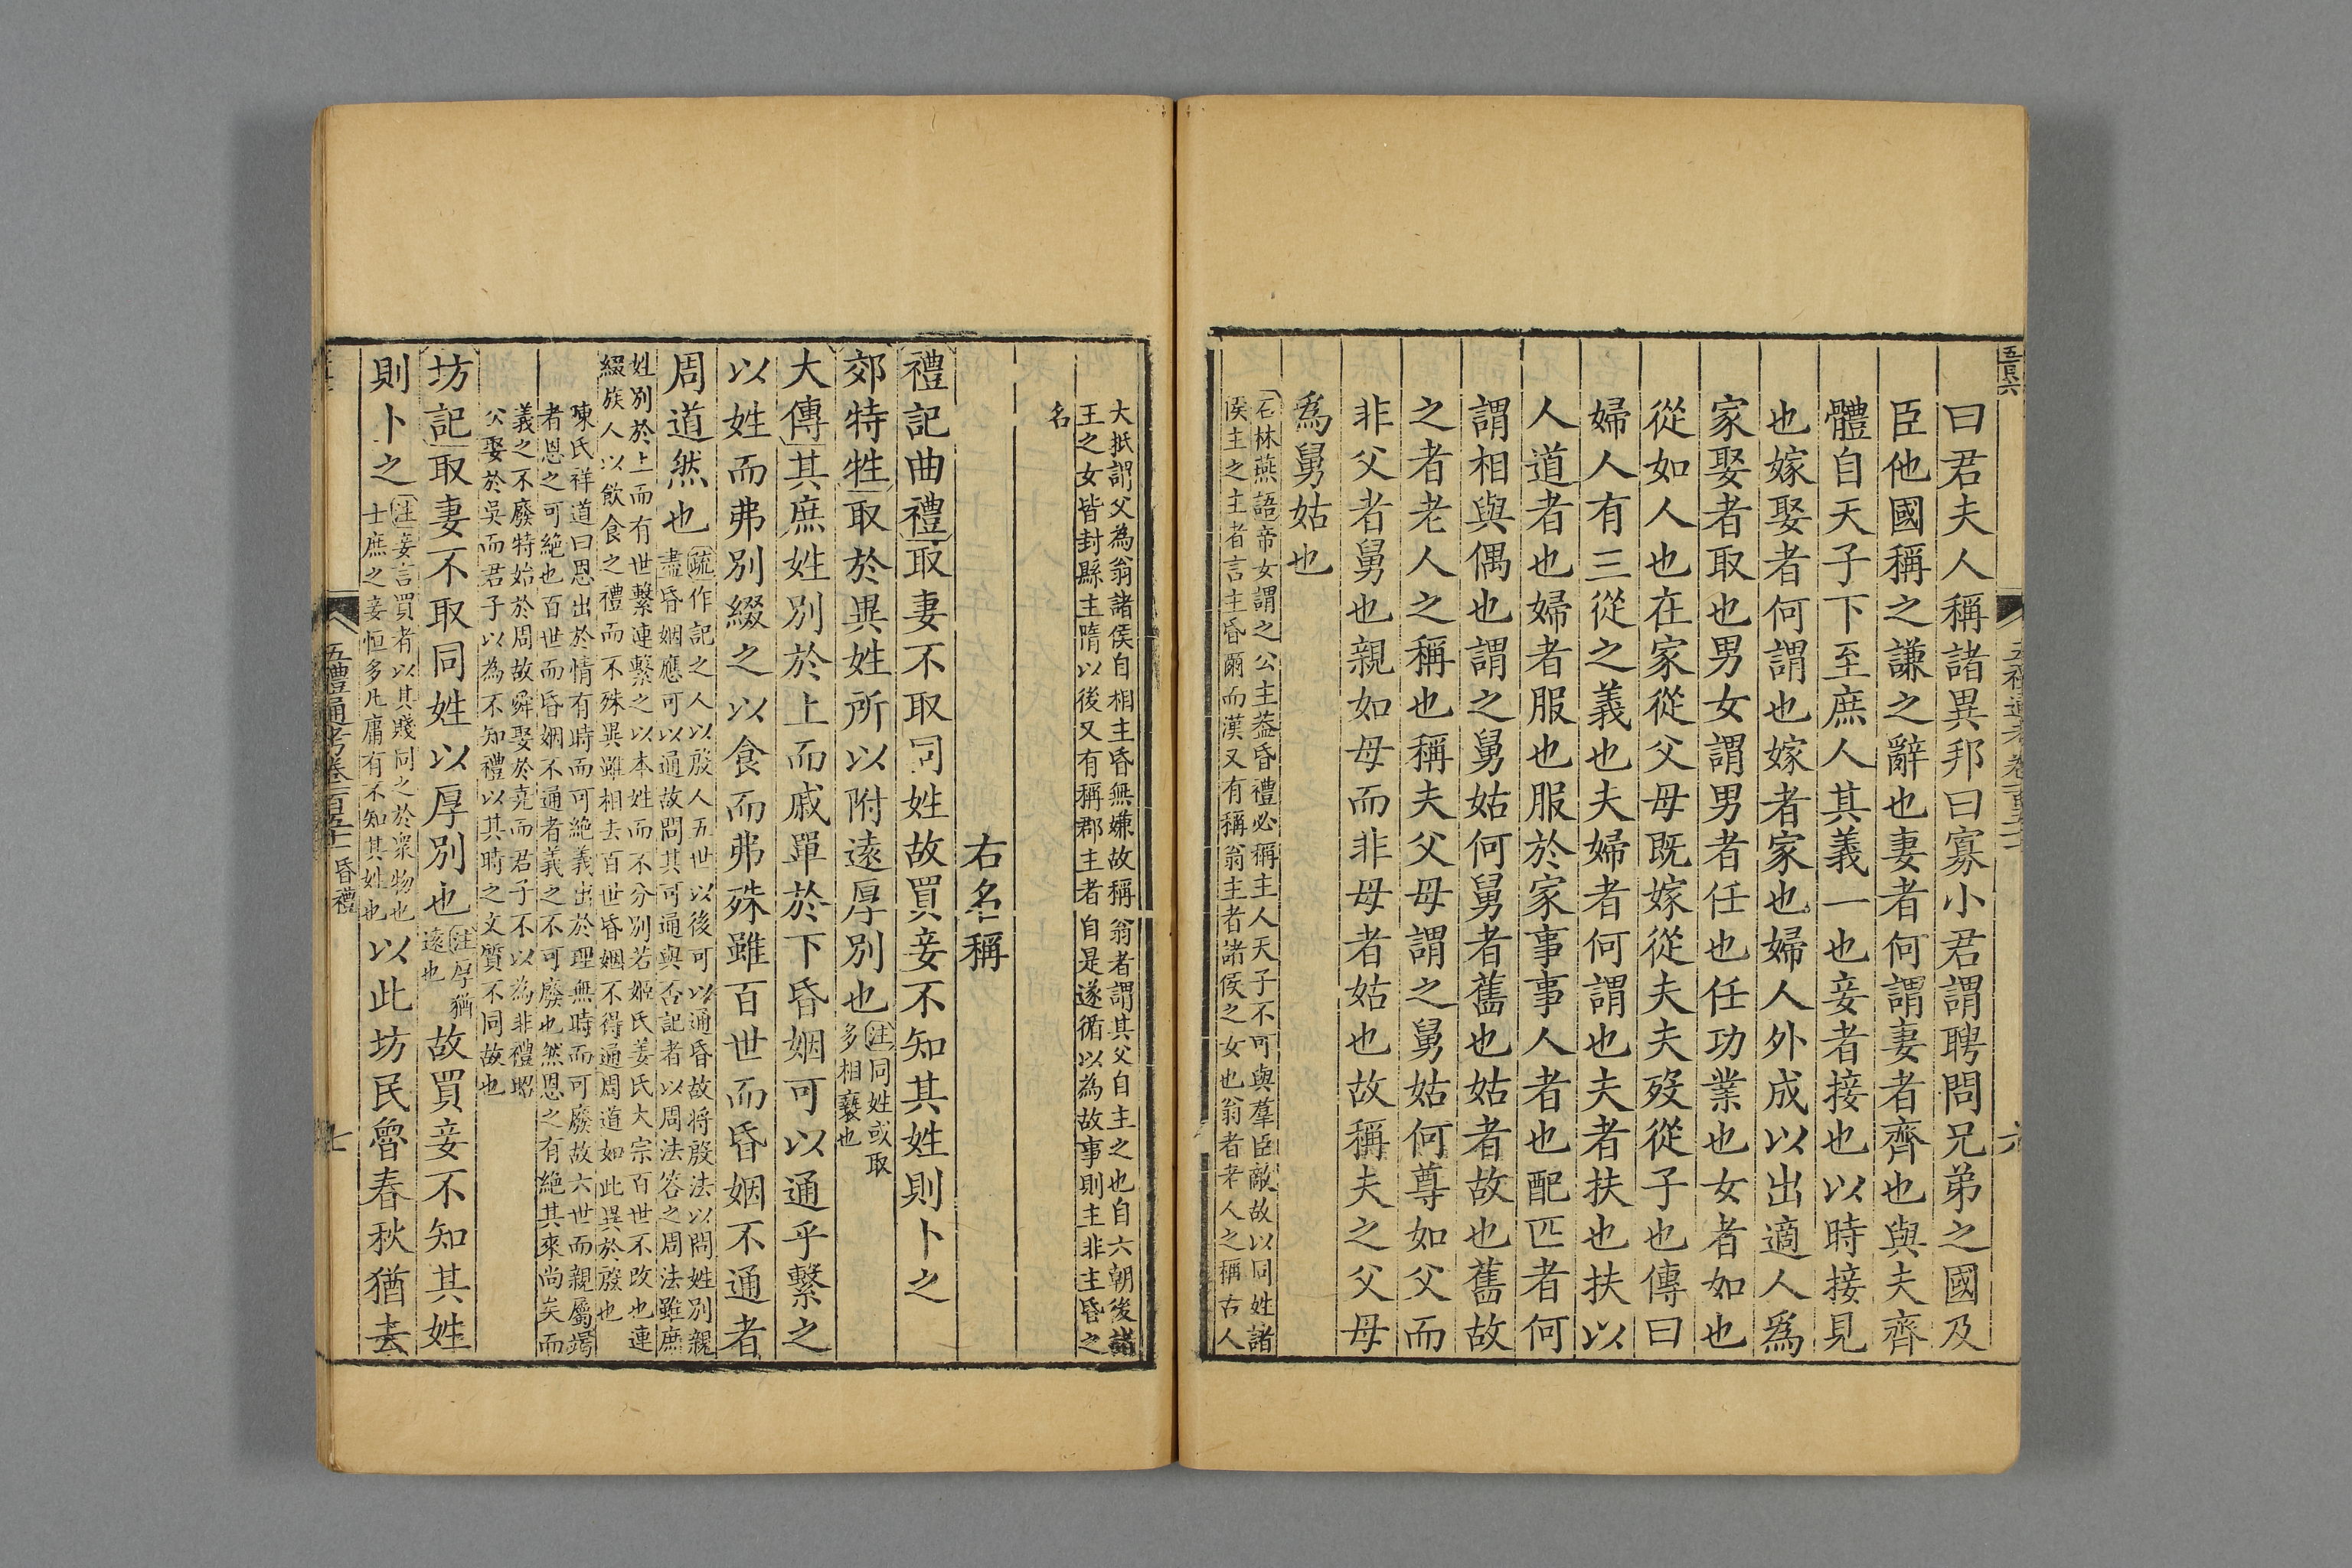 曰君夫人稱諸異邦曰寡小君謂聘問兄弟之國及
臣他國稱之謙之辭也妻者何謂妻者齊也與夫齊
體自天子下至庶人其義一也妾者接也以時接見
也嫁娶者何謂也嫁者家也婦人外成以出適人爲
家娶者取也男女謂男者任也任功業也女者如也
從如人也在家從父母既嫁從夫夫歿從子也傳曰
婦人有三從之義也夫婦者何謂也夫者扶也扶以
人道者也婦者服也服於家事事人者也配匹者何
謂相與偶也謂之舅姑何舅者舊也姑者故也舊故
之者老人之稱也稱夫父母謂之舅姑何尊如父而
非父者舅也親如母而非母者姑也故稱夫之父母
爲舅姑也
石林燕語帝女謂之公主葢昏禮必稱主人天子不可與羣臣敵故以同姓諸
侯主之主者言主昏爾而漢又有稱翁主者諸侯之女也翁者老人之稱古人
大抵謂父為翁諸侯自相主昏無嫌故稱翁者謂其父自主之也自六朝後諸
王之女皆封縣主隋以後又有稱郡主者自是遂循以為故事則主非主昏之
名
右名稱
禮記曲禮取妻不取同姓故買妾不知其姓則卜之
郊特牲取於異姓所以附遠厚別也
注同姓或取
多相䙝也
大傳其庶姓別於上而戚單於下昏姻可以通乎繫之
以姓而弗別綴之以食而弗殊雖百世而昏姻不通者
周道然也
疏作記之人以殷人五世以後可以通昏故將殷法以問姓別親
盡昏姻應可以通故問其可通與否記者以周法答之周法雖庶
姓別於上而有世繫連繫之以本姓而不分別若姬氏姜氏大宗百世不改也連
綴族人以飲食之禮而不殊異雖相去百世昏姻不得通周道如此異於殷也
陳氏祥道曰恩出於情有時而可絶義出於理無時而可廢故六世而親屬竭
者恩之可絶也百世而昏姻不通者義之不可廢也然恩之有絶其來尚矣而
義之不廢特始於周故舜娶於堯而君子不以為非禮昭
公娶於吳而君子以為不知禮以其時之文質不同故也
坊記取妻不取同姓以厚別也
注厚猶
遠也
故買妾不知其姓
則卜之
注妾言買者以其賤同之於衆物也
士庶之妾恒多凡庸有不知其姓也
以此坊民魯春秋猶去
五禮通考卷一百五十一 昏禮
七